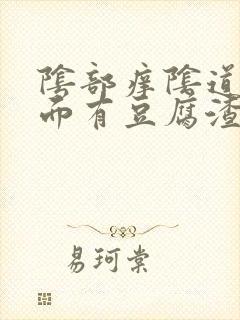 陰部痒陰道
而有豆腐渣
易珂棠